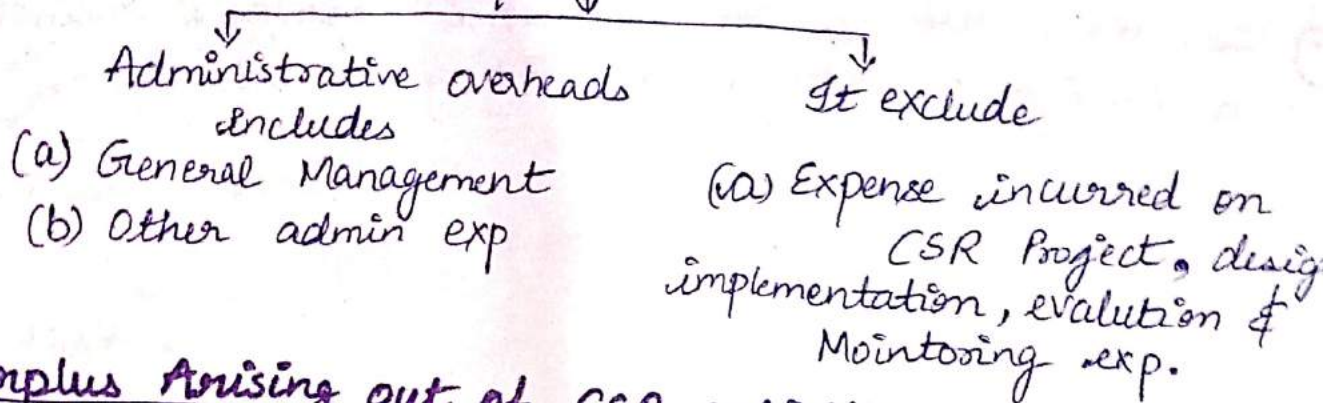 Administrative overheads
includes
(a) General Management
(b) Other admin exp
It exclude
(a) Expense incurred on
CSR Project, desig
implementation, evalution &
Mointoring exp.
Arising out of